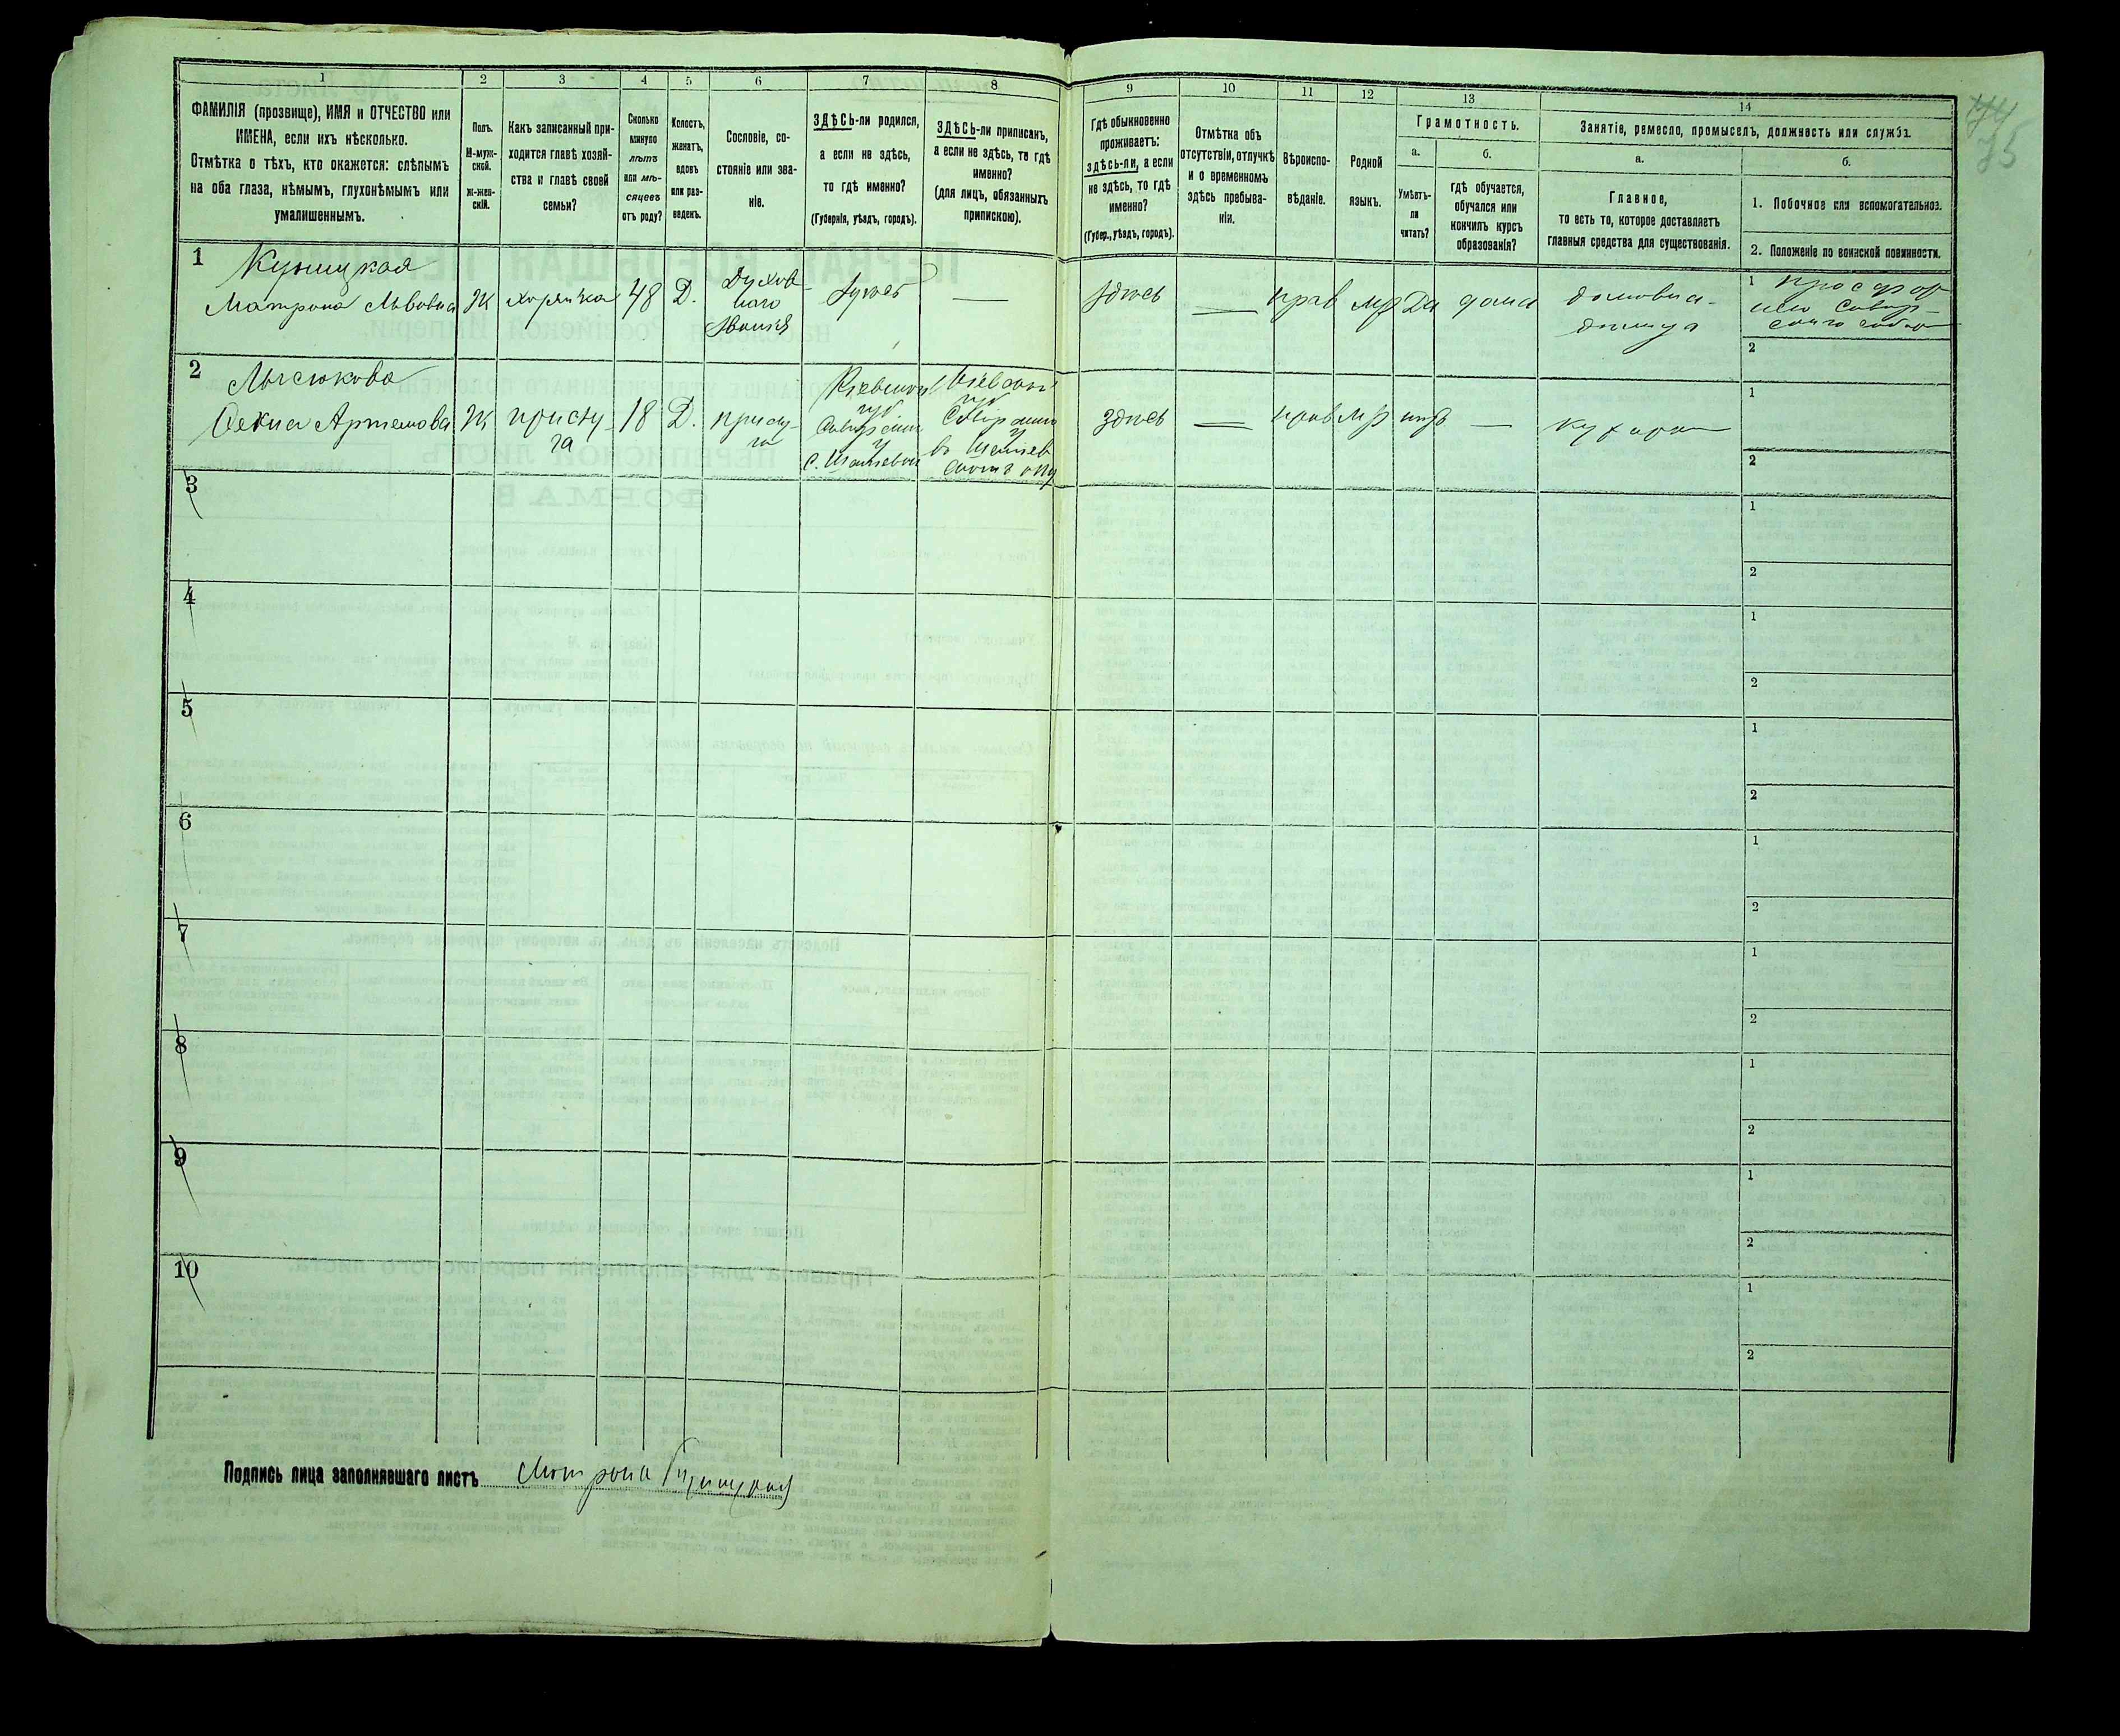 1 2 3 4 5 6 7 8 9 10 11 12 13 14
ФАМИЛІЯ (прозвище), ИМЯ и ОТЧЕСТВО или
ИМЕНА, если ихъ нѣсколько.
Отмѣтка о тѣхъ, кто окажется: слѣпымъ
на оба глаза, нѣмымъ, глухонѣмымъ или
умалишеннымъ.
Полъ.
М-муж-
ской.
ж-жен-
скій.
Какъ записанный при-
ходится главѣ хозяй-
ства и главѣ своей
семьи?
Сколько
минуло
лѣтъ
или мѣ-
сяцевъ
отъ роду?
Холостъ,
женатъ,
вдовъ
или раз-
веденъ.
Сословіе, со-
стояніе или зва-
ніе.
ЗДѢСЬ-ли родился,
а если не здѣсь,
то гдѣ именно?
(Губернія, уѣздъ, городъ).
ЗДѢСЬ-ли приписанъ,
а если не здѣсь, то гдѣ
именно?
(для лицъ, обязанныхъ
припискою).
Гдѣ обыкновенно
проживаетъ:
здѣсь-ли, а если
не здѣсь, то гдѣ
именно?
(Губер., уѣздъ, городъ).
Отмѣтка объ
отсутствіи, отлучкѣ
и о временномъ
здѣсь пребыва-
ніи.
Вѣроиспо-
вѣданіе.
Родной
языкъ.
Грамотность.
а.
Умѣетъ-
ли
читать?
б.
гдѣ обучается,
обучался или
кончилъ курсъ
образованія?
Занятіе, ремесло, промыселъ, должность или служба.
а.
Главное,
то есть то, которое доставляетъ
главныя средства для существованія.
б.
1. Побочное или вспомогательное.
2. Положеніе по воинской повинности.
75
1 Куницкая
Матрона Львовна Ж хозяйка 48 Д. Духов
наго
званія
здѣсь — прав мр да дома
1
2
2
Ж прислу
га 18 Д. прислу
га
Кіевской
губ
у
Кіевской
губ
у
здѣсь — прав мр нѣтъ — кухарка
1
2
3 1
2
4 1
2
5 1
2
6 1
2
7 1
2
8 1
2
9 1
2
10 1
2
Подпись лица заполнявшаго листъ Матрона Куницкая